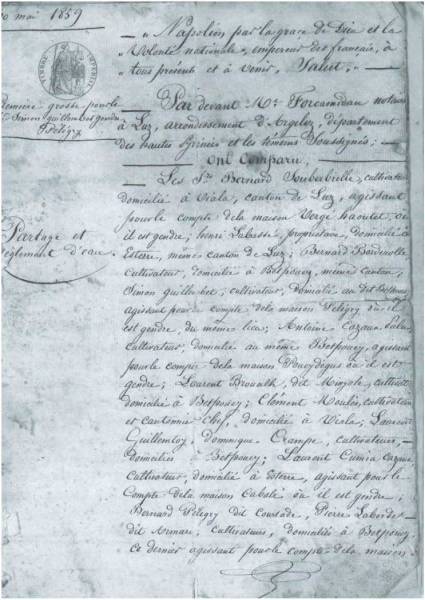 30 mai 1859
TIMBRE IMPERIAL
première grosse pour le
Sr Simon Guillembet gendre
Péligry
Partage et
règlement d'eau.
— « Napoléon par la grâce de Dieu et la
« Volonté nationale, empereur des français, à
« tous présents et à venir, Salut, » —
Par devant Me Forcamidan notaire
à Luz, arrondissement d'Argelez, département
des hautes Pyrénées et les témoins soussignés; —
— ont Comparu, —
Les Srs Bernard Souberbielle, cultivateur
domicilié à Viala, canton de Luz, agissant
pour le compte de la maison Vergé haoutet où
il est gendre; henri Labasse, propriétaire, domicilié à
Esterre, même canton de Luz; Bernard
cultivateur, domicilié à Betpouey, même canton,
Simon Guillembet, cultivateur, domicilié au dit Betpouey
agissant pour compte de la maison Péligry où il
est gendre, du même lieu; Antoine Cazaux
cultivateur, domicilié au même Betpouey, agissant
pour le compte de la maison où il est
gendre; Laurent dit cultivateur
domicilié à Betpouey; Clément cultivateur
et cantonnier chef, domicilié à Viala; Laurent
Dominique Crampe, cultivateurs, —
domiciliés à Betpouey; Laurent Cumia
Cultivateur domicilié à Esterre, agissant pour le
Compte de la maison Cabale où il est gendre;
Bernard Péligry dit Pierre Laborde
dit cultivateurs, domiciliés à Betpouey
ce dernier agissant pour le compte de la maison